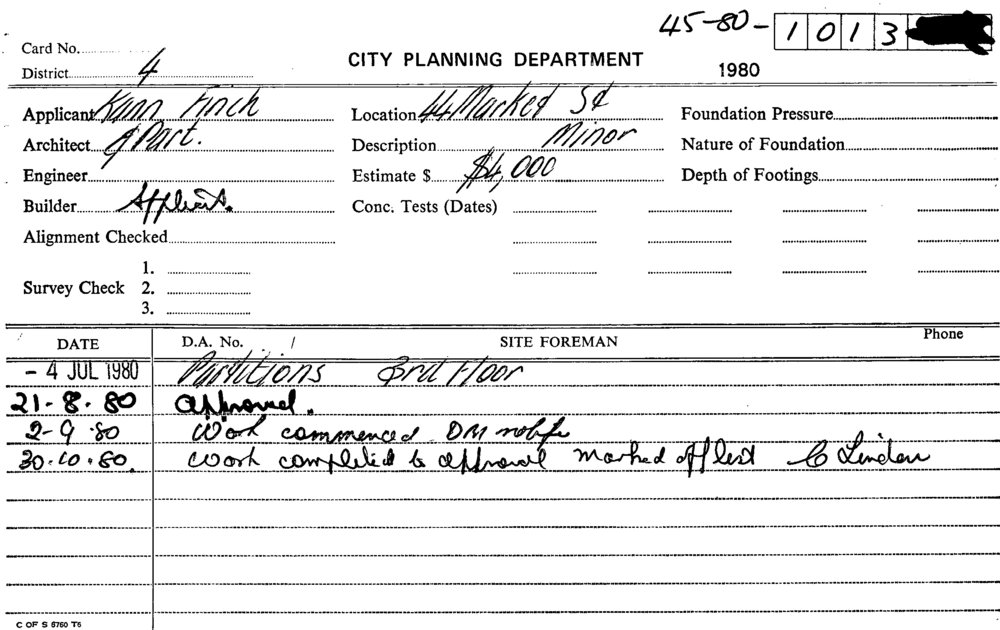 45-80- 1013
Card No.
CITY PLANNING DEPARTMENT
District 4
1980
Applicant Kann Finch Location 44 Market St Foundation Pressure
Architect & Part. Description Minor Nature of Foundation
Engineer Estimate $ $4,000 Depth of Footings
Builder Applicit. Conc. Tests (Dates)
Alignment Checked
1.
Survey Check 2.
3.
DATE D.A. No. / SITE FOREMAN Phone
- 4 JUL 1980 Partitions 3rd Floor
21-8-80 Approved.
2-9-80 Work commenced DM
30.10.80. Work completed to approval marked off list C Lindau
C OF S 6760 T6